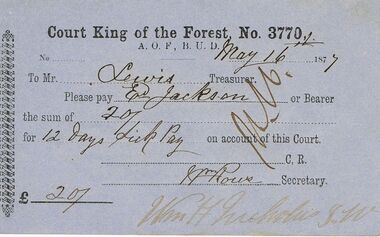 Court King of the Forest, No. 3770.
A. O. F., B. U. D.
No May 16th 1877
To Mr. Lewis Treasurer.
Please pay Ed Jackson or Bearer
the sum of 20/
for 12 Days Sick Pay on account of this Court.
C. R.
Secretary.
£ 20/
Wm H Nicholls S. W